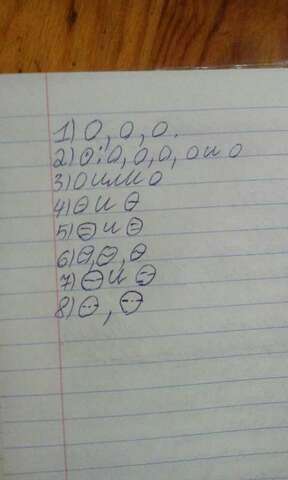 1) О, О, О.
2) ⊙: О, О, О, О и О
3) О или О
4) ⊖ и ⊖
5) ⊖ и ⊖
6) ⊖, ⊖, ⊖
7) ⊖ и ⊖
8) ⊖, ⊖